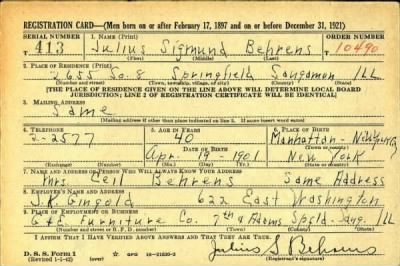 REGISTRATION CARD—(Men born on or after February 17, 1897 and on or before December 31, 1921)
SERIAL NUMBER 1. NAME (Print) ORDER NUMBER
T 413 Julius Sigmund Behrens T 10490
(First) (Middle) (Last)
2. PLACE OF RESIDENCE (Print)
2655 So. 8 Springfield Sangamon ILL
(Number and street) (Town, township, village, or city) (County) (State)
[THE PLACE OF RESIDENCE GIVEN ON THE LINE ABOVE WILL DETERMINE LOCAL BOARD
JURISDICTION; LINE 2 OF REGISTRATION CERTIFICATE WILL BE IDENTICAL]
3. MAILING ADDRESS
Same
[Mailing address if other than place indicated on line 2. If same insert word same]
4. TELEPHONE 5. AGE IN YEARS 6. PLACE OF BIRTH
2-2577 40 Manhattan - New York
DATE OF BIRTH (Town or county)
Apr. 19 - 1901 New York
(Exchange) (Number) (Mo.) (Day) (Yr.) (State or country)
7. NAME AND ADDRESS OF PERSON WHO WILL ALWAYS KNOW YOUR ADDRESS
Mrs. Ceil Behrens Same Address
8. EMPLOYER'S NAME AND ADDRESS
J.R. Gingold 622 East Washington
9. PLACE OF EMPLOYMENT OR BUSINESS
Furniture Co. 7th & Adams Spfld - Sang. Ill
(Number and street or R. F. D. number) (Town) (County) (State)
I AFFIRM THAT I HAVE VERIFIED ABOVE ANSWERS AND THAT THEY ARE TRUE.
D. S. S. Form 1 Julius S Behrens
(Revised 1-1-42) (over) (Registrant's signature)